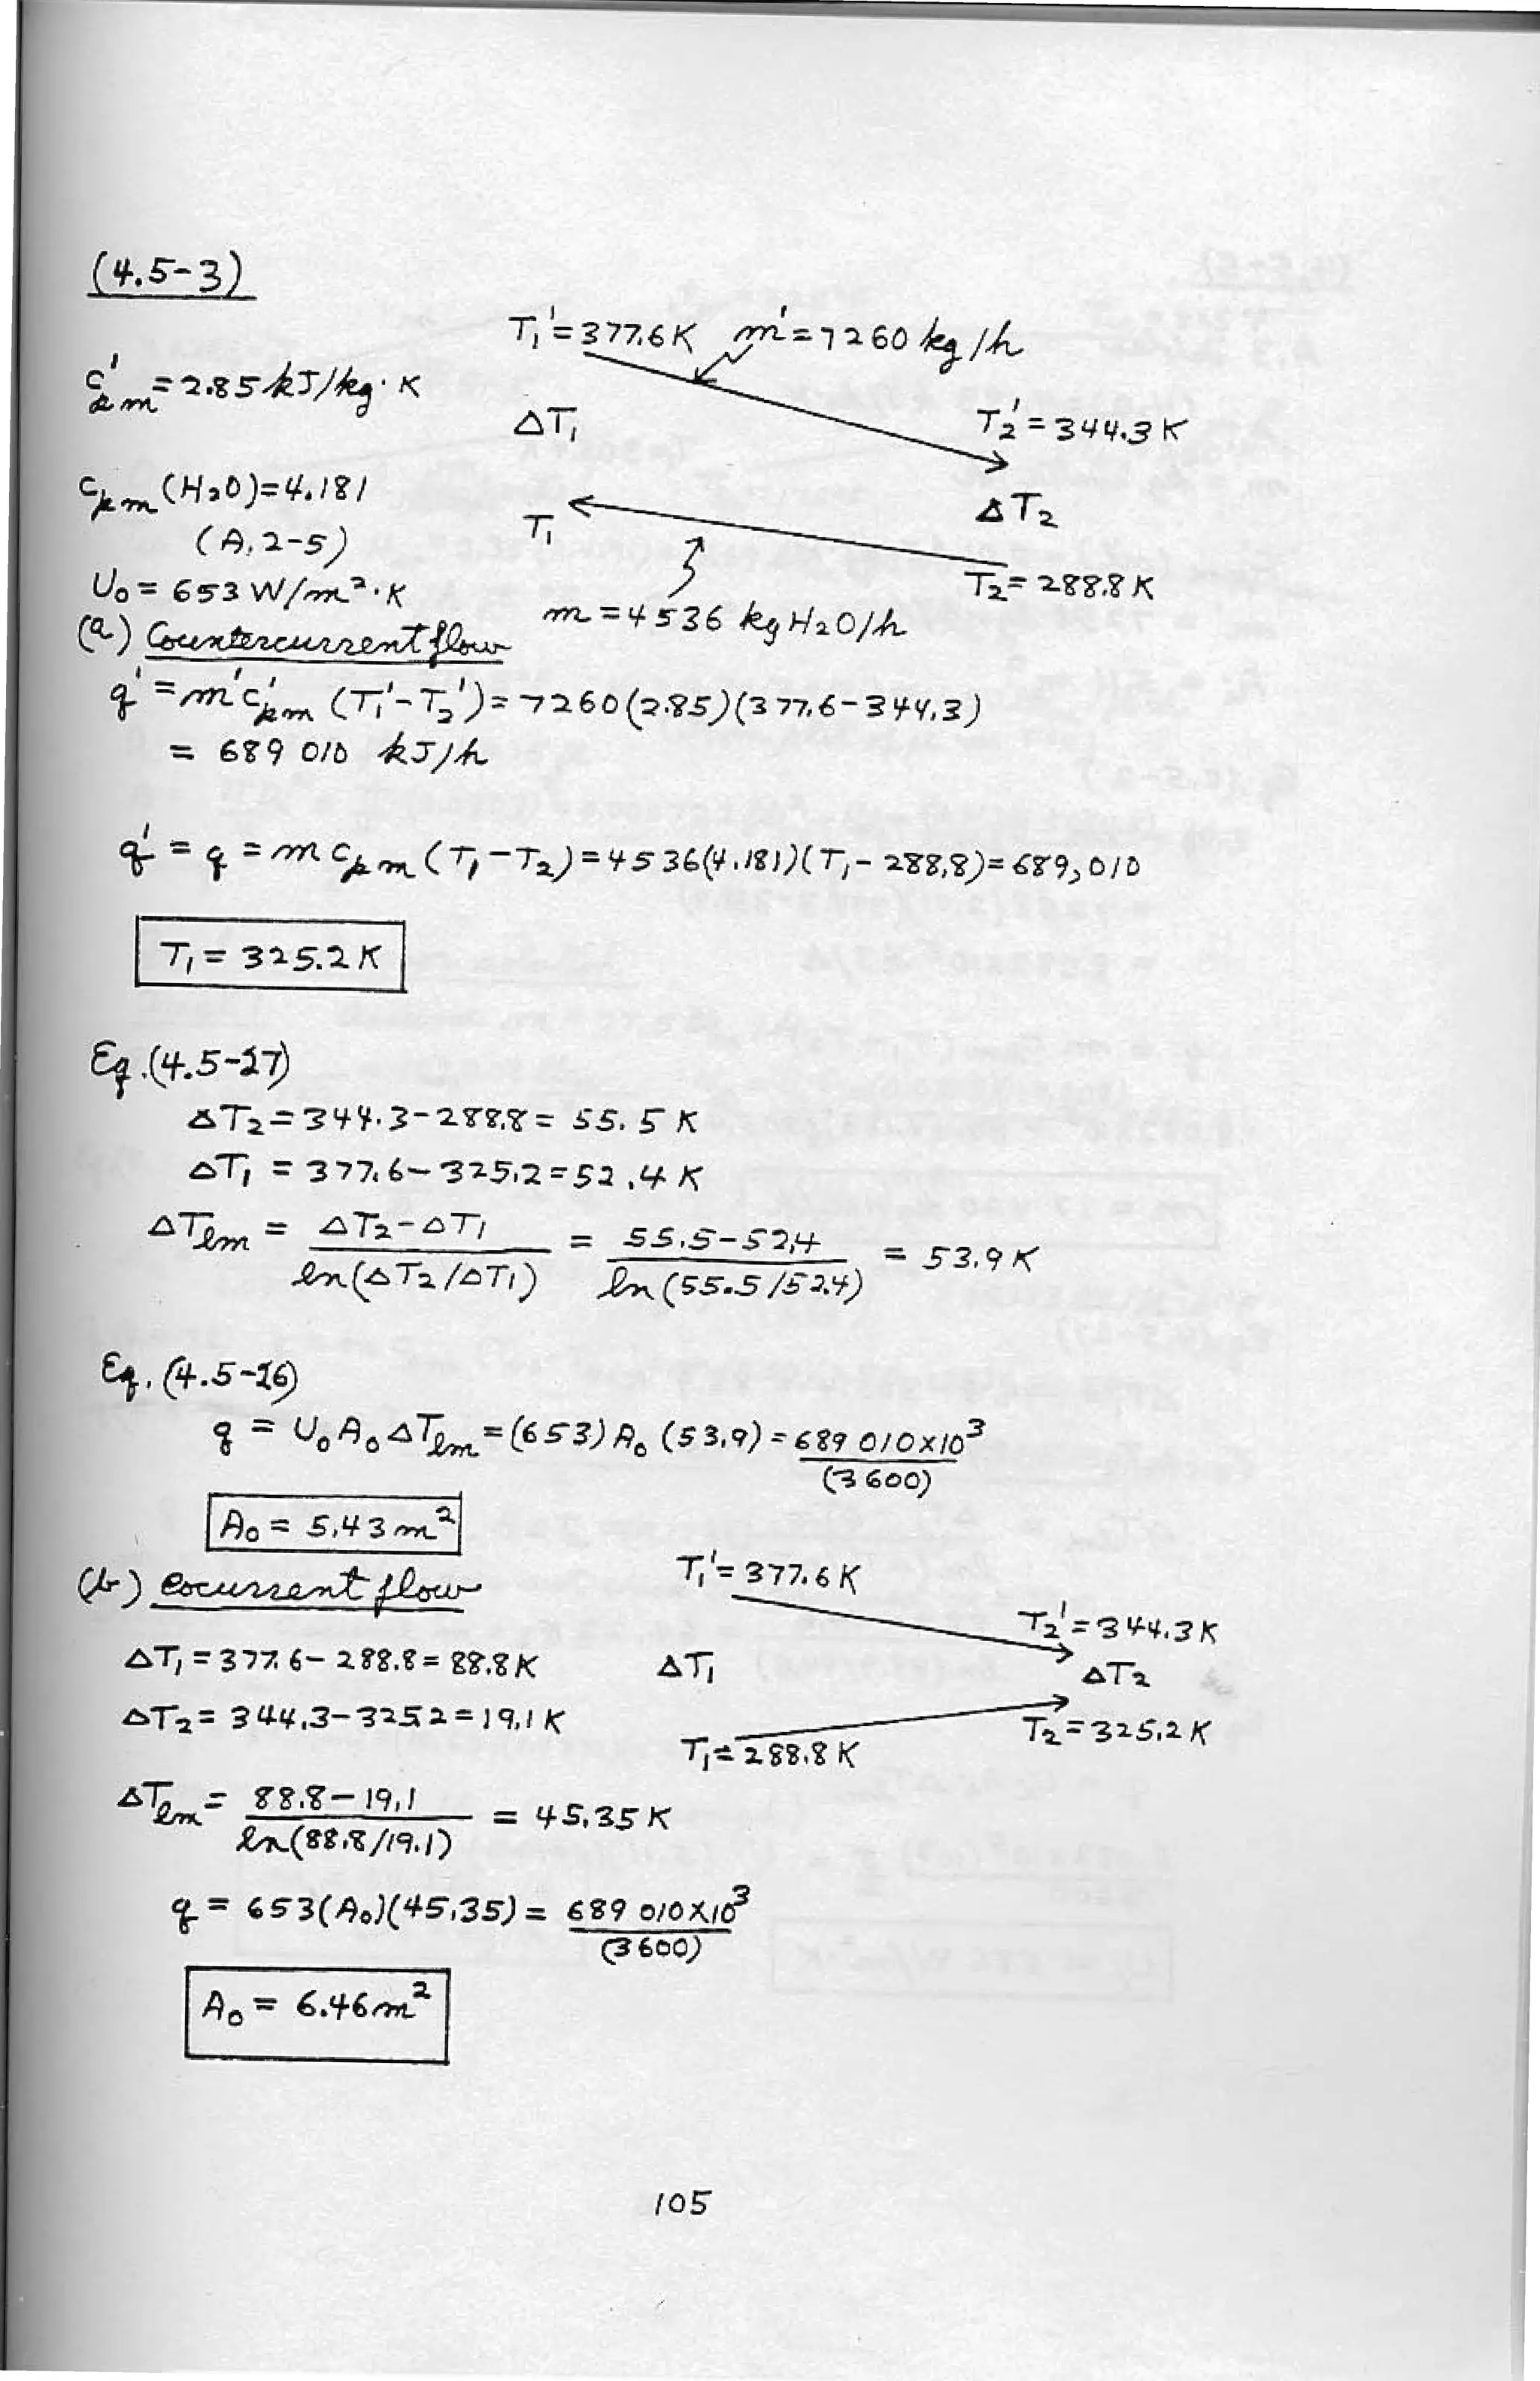 (4.5-3)
T₁' = 377.6 K m' = 7260 kg/h
c'pm = 2.85 kJ/kg·K
ΔT₁
T₂' = 344.3 K
cpm (H₂O) = 4.181
(A.2-5)
T₁
ΔT₂
U₀ = 653 W/m²·K
T₂ = 288.8 K
m = 4536 kg H₂O/h
(a) Countercurrent flow
q' = m'c'pm (T₁' - T₂') = 7260(2.85)(377.6 - 344.3)
= 689 010 kJ/h
q' = q = m cpm (T₁ - T₂) = 4536(4.181)(T₁ - 288.8) = 689,010
T₁ = 325.2 K
Eq. (4.5-27)
ΔT₂ = 344.3 - 288.8 = 55.5 K
ΔT₁ = 377.6 - 325.2 = 52.4 K
ΔTlm = (ΔT₂ - ΔT₁) / ln(ΔT₂/ΔT₁) = (55.5 - 52.4) / ln(55.5/52.4) = 53.9 K
Eq. (4.5-26)
q = U₀A₀ΔTlm = (653) A₀ (53.9) = 689 010×10³ / (3600)
A₀ = 5.43 m²
T₁' = 377.6 K
(b) Cocurrent flow
T₂' = 344.3 K
ΔT₁ = 377.6 - 288.8 = 88.8 K
ΔT₁
ΔT₂
ΔT₂ = 344.3 - 325.2 = 19.1 K
T₂ = 325.2 K
T₁ = 288.8 K
ΔTlm = (88.8 - 19.1) / ln(88.8/19.1) = 45.35 K
q = 653(A₀)(45.35) = 689 010×10³ / (3600)
A₀ = 6.46 m²
105